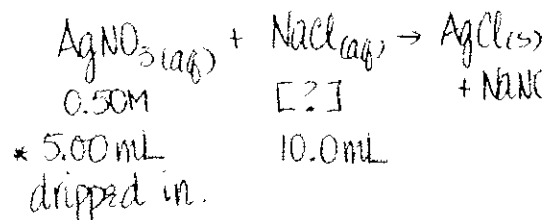 AgNO₃(aq) + NaCl(aq) → AgCl(s)
+ NaN
0.50M [?]
* 5.00mL 10.0mL
dripped in.